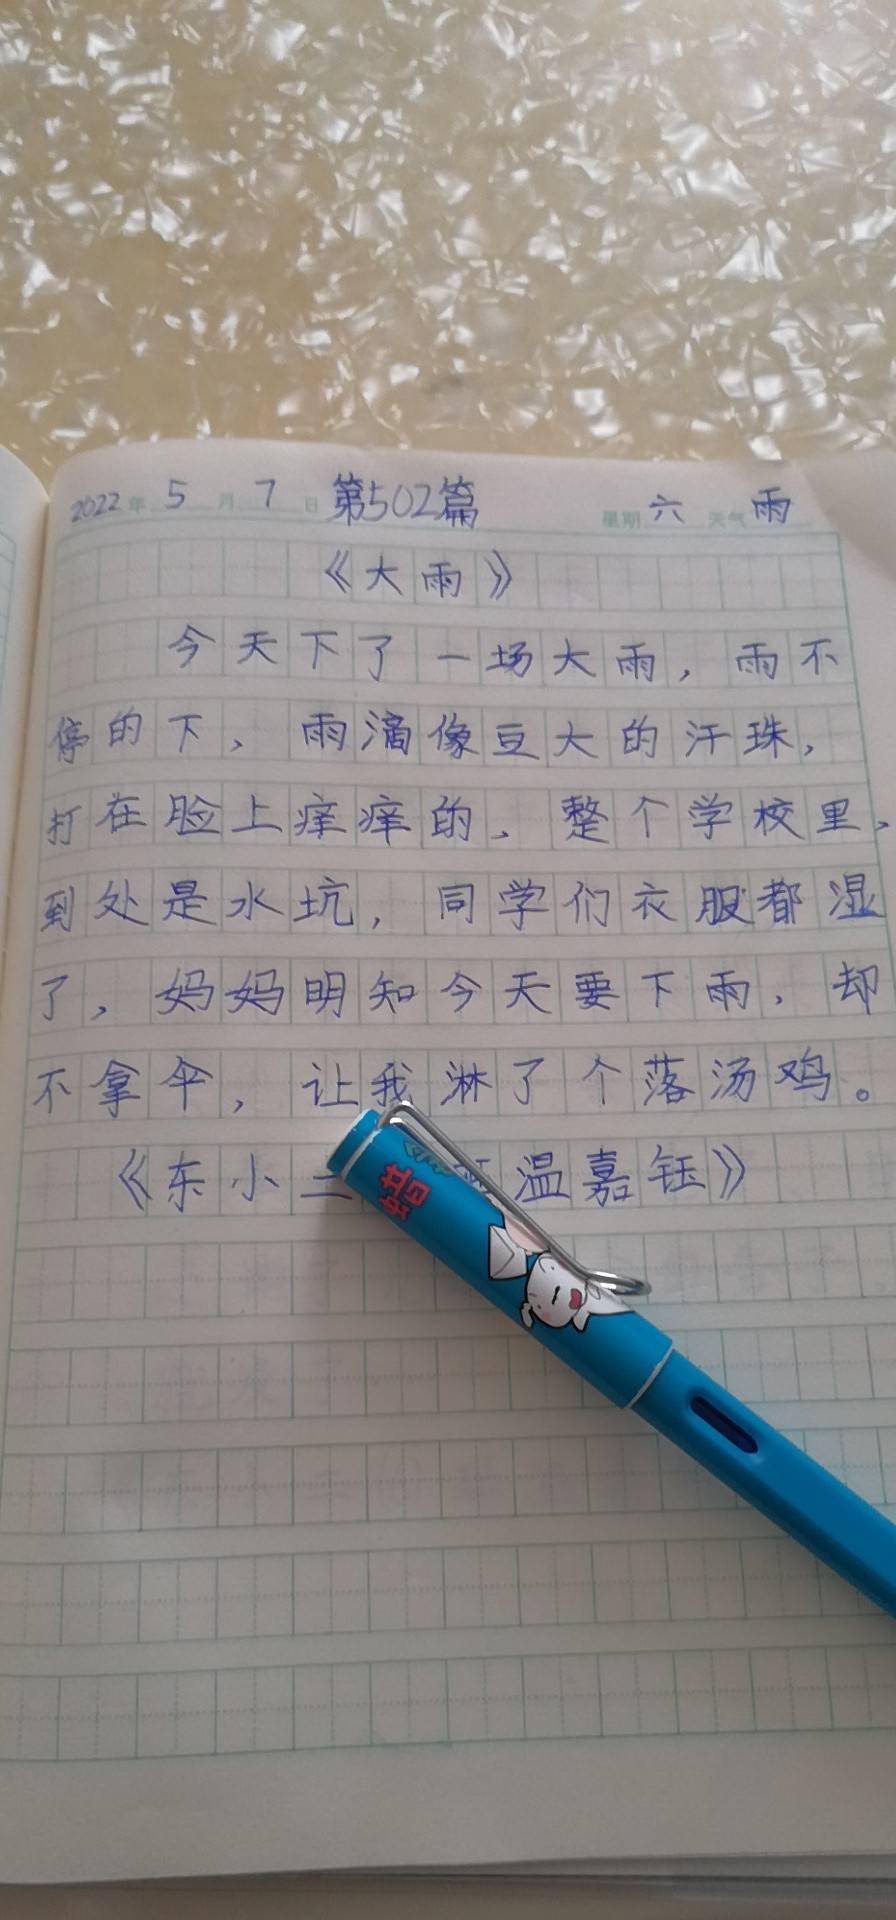 2022年 5月 7日 第502篇 星期六 天气雨
《大雨》
今天下了一场大雨，雨不
停的下，雨滴像豆大的汗珠，
打在脸上痒痒的，整个学校里，
到处是水坑，同学们衣服都湿
了，妈妈明知今天要下雨，却
不拿伞，让我淋了个落汤鸡。
《东小二 温嘉钰》